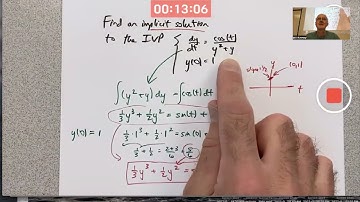 00:13:06
Find an implicit solution
to the IVP { dy/dt = cos(t)/(y²+y)
y(0) = 1
∫(y²+y) dy = ∫cos(t) dt
1/3 y³ + 1/2 y² = sin(t) +
y(0)=1 1/3·1³ + 1/2·1² = sin(0)
1/3 + 1/2 = 2+3/6 = 5/6
1/3 y³ + 1/2 y² =
y
(0,1)
t